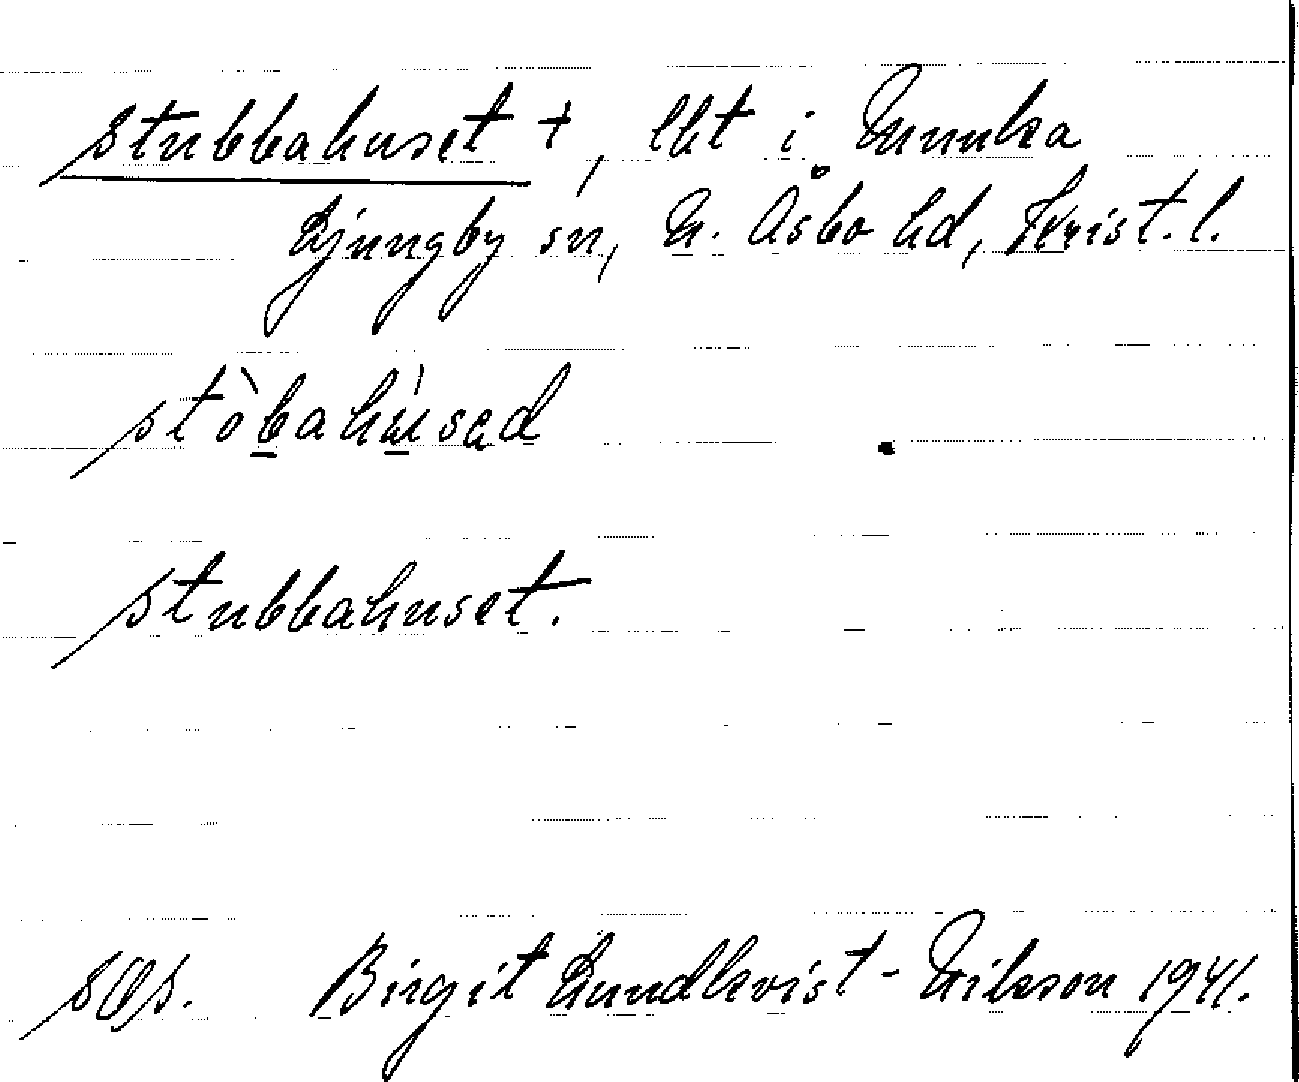 Stubbahuset +, lht i Munka
Ljungby sn, N. Åsbo hd, Krist. l.
stòbahùsad
Stubbahuset.
SOS. Birgit Lundkvist-Nilsson 1941.